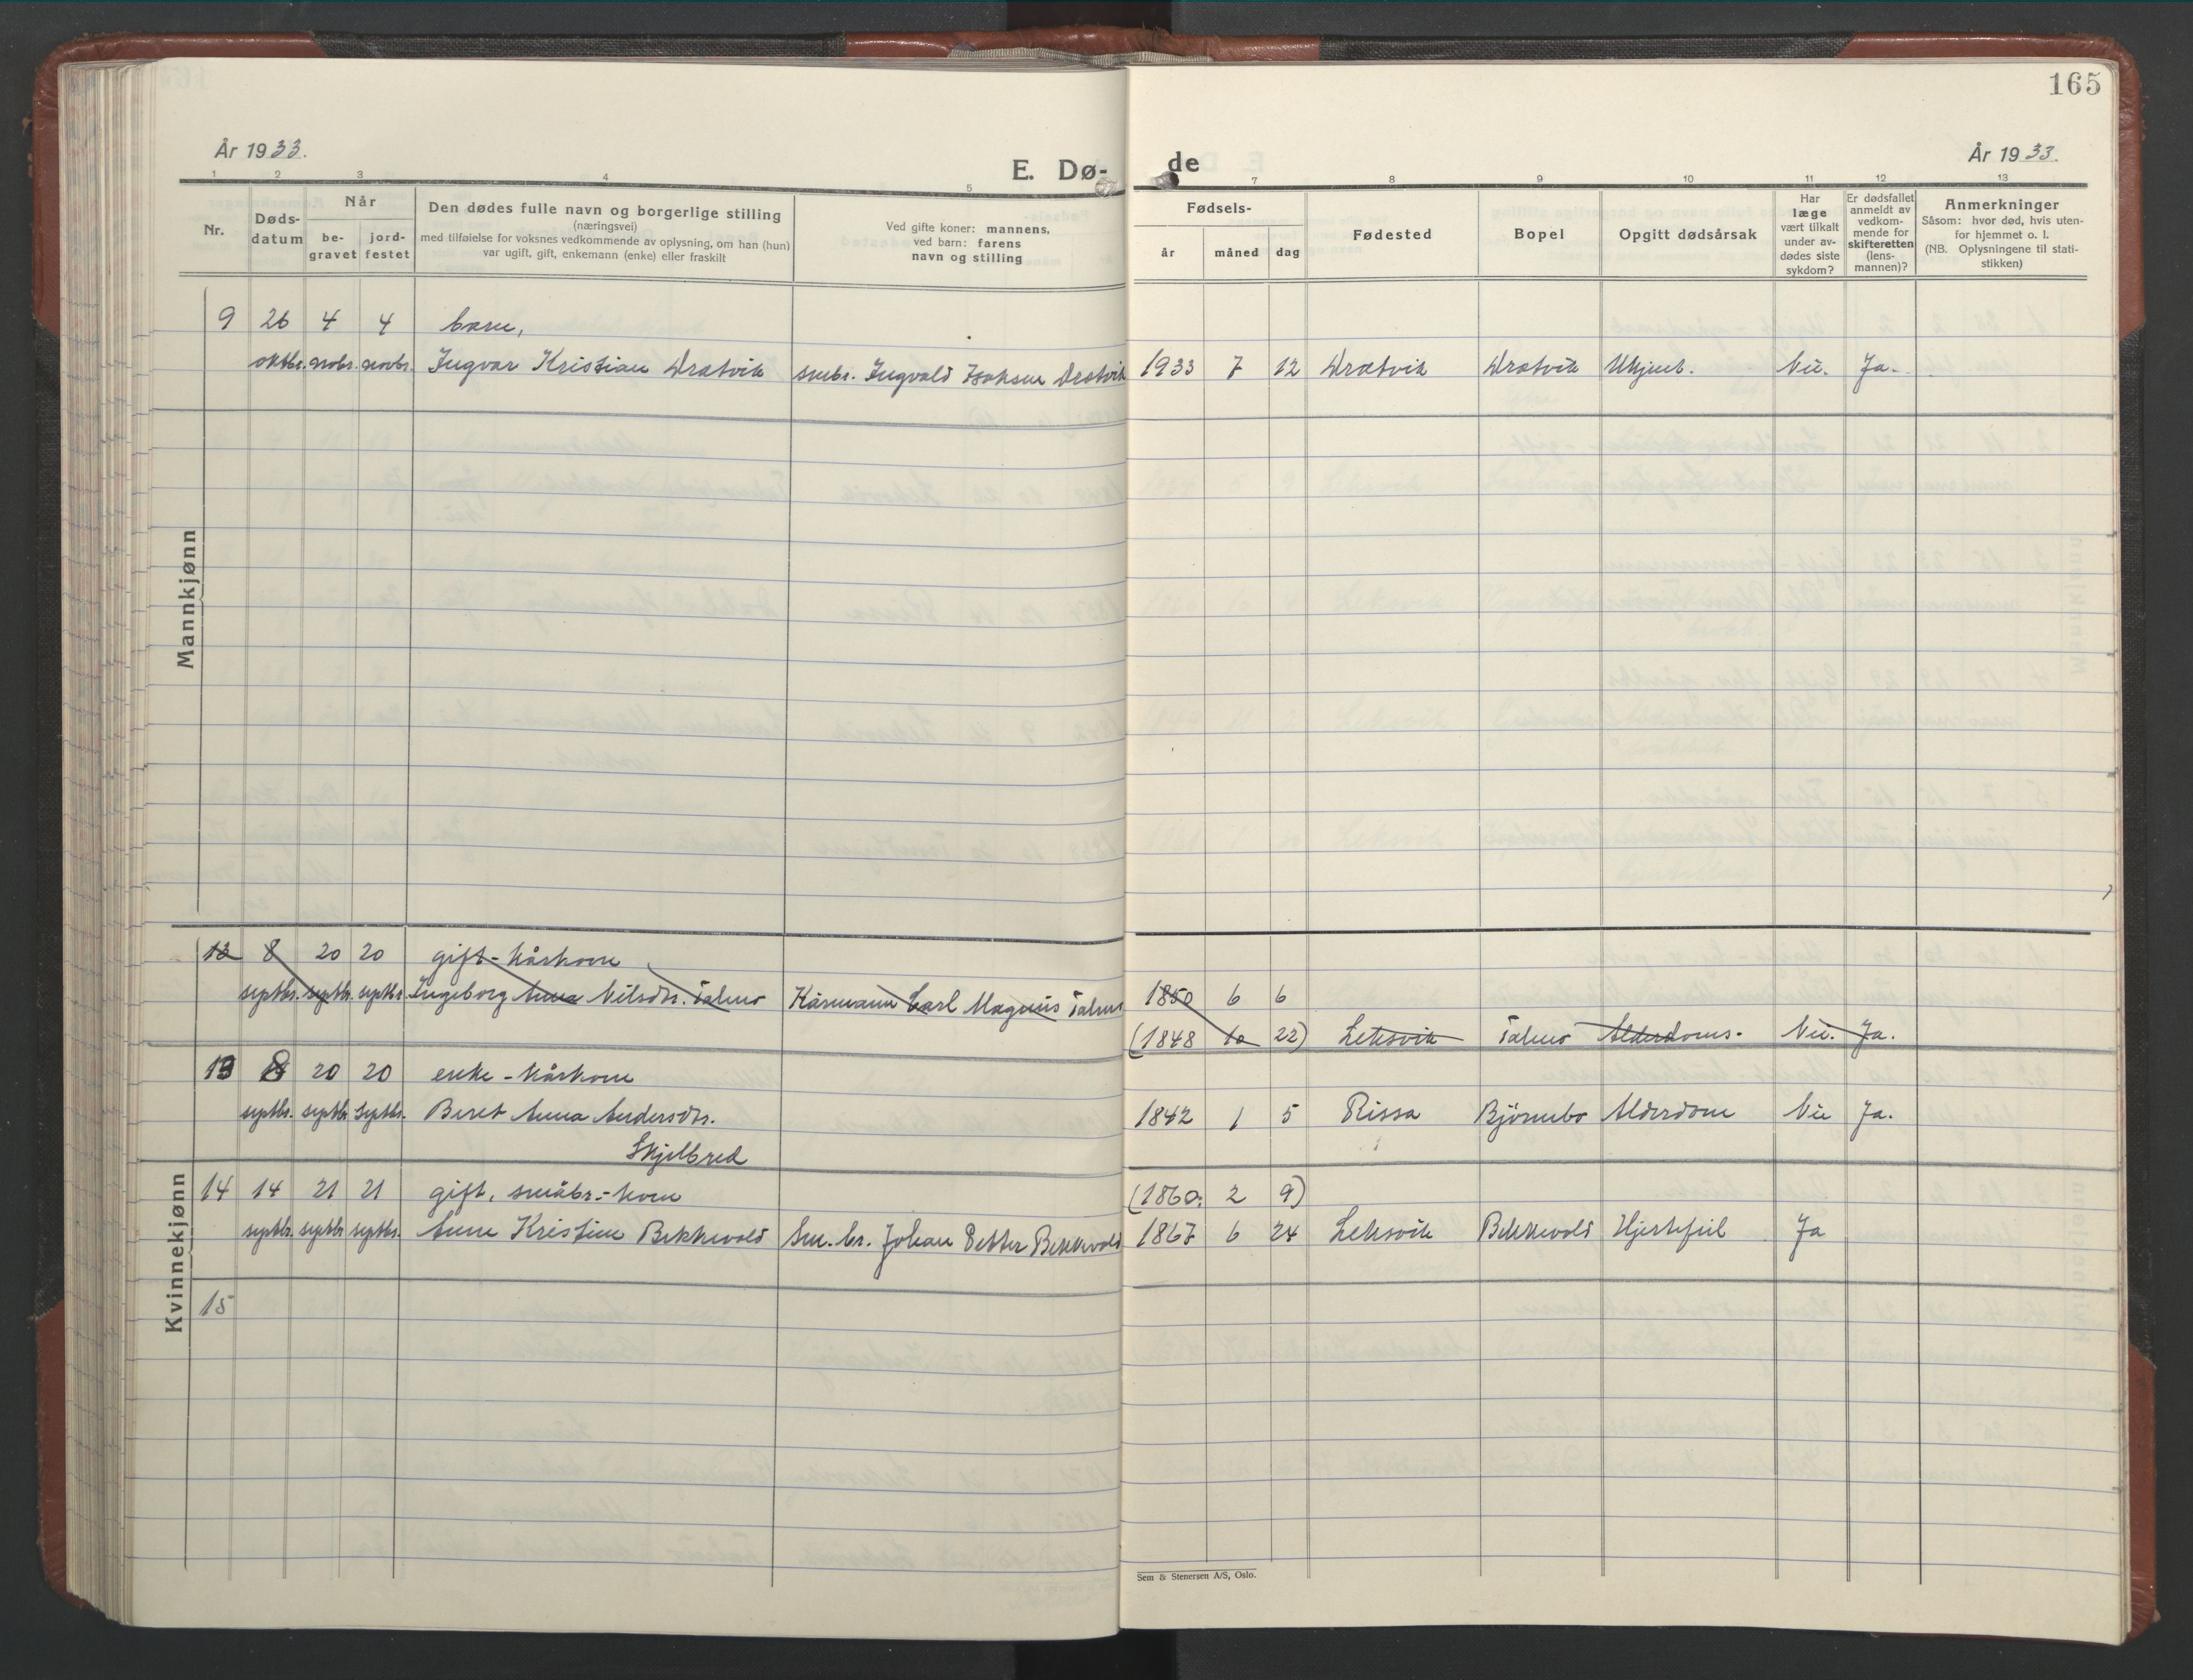 165
År 1933.
E. Dø-
de
År 1933.
1 2 3 4 5 7 8 9 10 11 12 13
Nr.
Døds-
datum
Når
be-
gravet
jord-
festet
Den dødes fulle navn og borgerlige stilling
(næringsvei)
med tilføielse for voksnes vedkommende av oplysning, om han (hun)
var ugift, gift, enkemann (enke) eller fraskilt
Ved gifte koner: mannens,
ved barn: farens
navn og stilling
Fødsels-
år måned dag
Fødested
Bopel
Opgitt dødsårsak
Har
læge
vært tilkalt
under av-
dødes siste
sykdom?
Er dødsfallet
anmeldt av
vedkom-
mende for
skifteretten
(lens-
mannen)?
Anmerkninger
Såsom: hvor død, hvis uten-
for hjemmet o. l.
(NB. Oplysningene til stati-
stikken)
Mannkjønn
9 26 4 4 barn,
oktbr. novbr. novbr. Ingvar Kristian Dratvik smbr. Ingvald Isaksen Dratvik 1933 7 12 Dratvik Dratvik Ukjent. Nei. Ja.
Kvinnekjønn
12 8 20 20 gift - kårkone
septbr. septbr. septbr. Ingeborg Anna Nilsdtr. Talmo Kårmann Carl Magnus Talmo 1850 6 6
(1848 10 22) Leksvik Talmo Alderdoms- Nei. Ja.
13 8 20 20 enke - kårkone
septbr. septbr. septbr. Beret Anna Andersdtr. 1842 1 5 Rissa Bjørnebo Alderdom Nei Ja.
Skjelbred
14 14 21 21 gift, småbr.-kone (1860. 2 9)
septbr. septbr. septbr. Anne Kristine Bekkevold Sm. br. Johan Petter Bekkevold 1867 6 24 Leksvik Bekkevold Hjertefeil Ja
15
Sem & Stenersen A/S, Oslo.